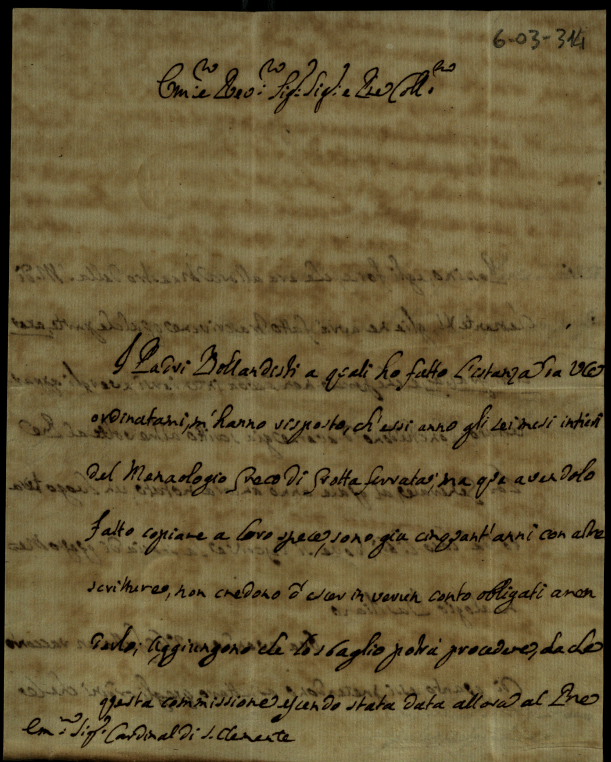 6-03-314
Em:mo e Rev:mo Sig:r Sig:r e Pne Coll:mo
I Padri Bollandisti a quali ho fatto l'istanza da VE
ordinatami, m'hanno risposto, ch'essi anno gli sei mesi intieri
del Menaologio Greco di Grotta ferrata; ma que avendolo
fatto copiare a loro spese, sono già cinquant'anni con altre
scritture, non credono d'esser in verun conto obligati a ren
derlo; Aggiungono che lo sbaglio potrà procedere, da che
questa commissione essendo stata data allora al Pne
Em:mo Sig:r Cardinal di S. Clemente